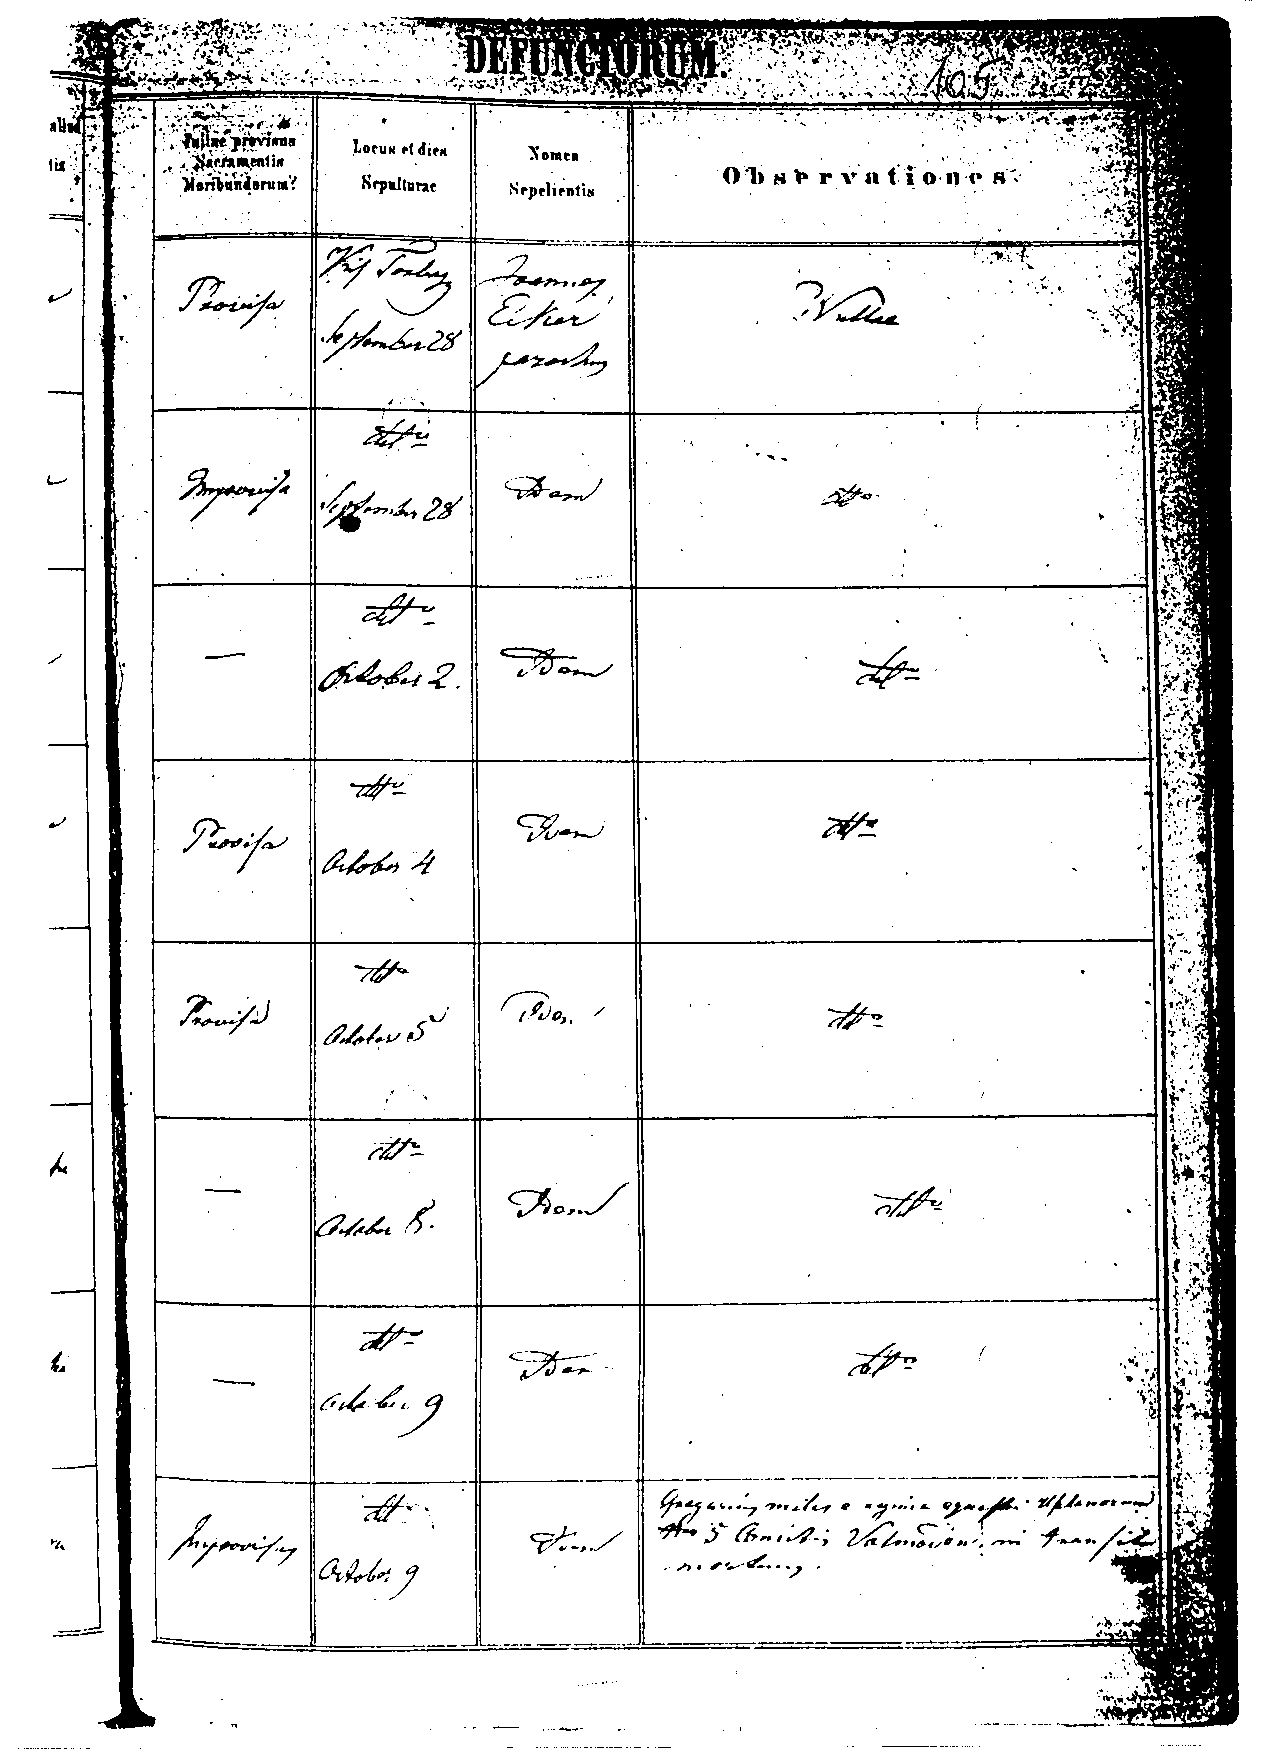 DEFUNCTORUM.
105
Fuitne provisus
Sacramentis
Moribundorum?
Locus et dies
Sepulturae
Nomen
Sepelientis
Observationes.
Provisa
Kis
September 28
Joannes
Eiker
parochus
Nullae
Improvisa
dtto
September 28
Idem
dtto
—
dtto
October 2.
Idem
dtto
Provisa
dtto
October 4
Idem
dtto
Provisa
dtto
October 5
Idem
dtto
—
dtto
October 8.
Idem
dtto
—
dtto
October 9
Idem
dtto
Improvisus
dtto
October 9
Idem
Gregarius miles e agmine equestri Uhlanorum
Nro 5 Comitis in transitu
mortuus.